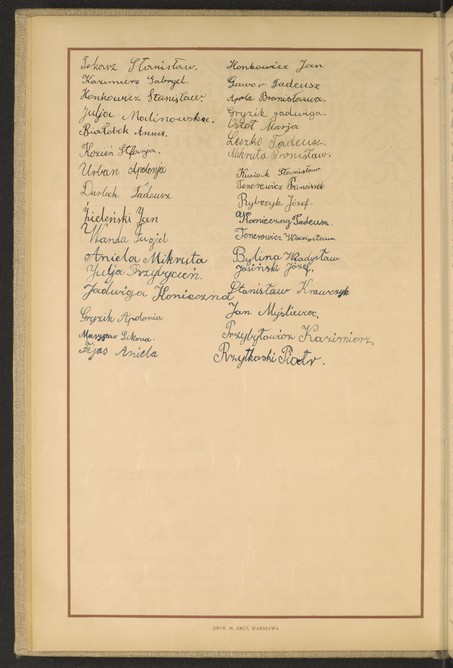 Stanisław.
Kazimierz Gabryel
Honkowicz Stanisław.
Julja Malinowska.
Białdek
Kozień Stefanja.
Urban Apolonja
Tadeusz
Zieleński Jan
Wanda
Aniela Mikruta
Julja Przybycień.
Jadwiga Konieczna
Gryzik Apolonia
Fijas Aniela
Honkowicz Jan
Gawor Tadeusz
Bronisława.
Gryzik Jadwiga
Osioł Marja
Leszko Tadeusz.
Mikruta Bronisław.
Kusiak Stanisław
Tonerowicz Franciszek
Rybczyk Józef.
Konieczny Tadeusz.
Tonerowicz Władysław
Bylina Władysław
Jasiński Józef.
Stanisław Krawczyk
Jan Myśliwiec.
Przybyłowicz Kazimierz.
Rzytkoski Piotr.
DRUK. M. ARCT, WARSZAWA